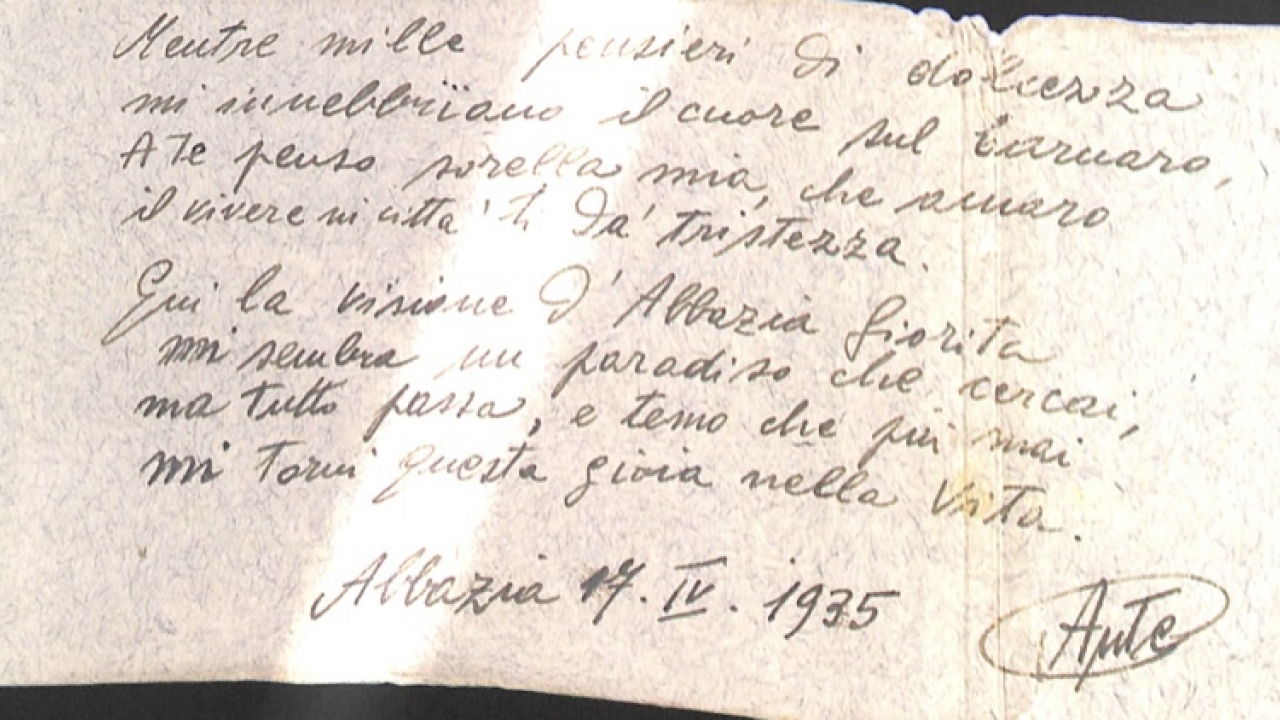 Mentre mille pensieri di dolcezza
mi innebbriano il cuore sul Carnaro,
A te penso sorella mia, che amaro
il vivere in città ti dà tristezza.
Qui la visione d'Abbazia fiorita
mi sembra un paradiso che cercai,
ma tutto passa, e temo che più mai
mi torni questa gioia nella vita.
Abbazia 17. IV. 1935
Ante